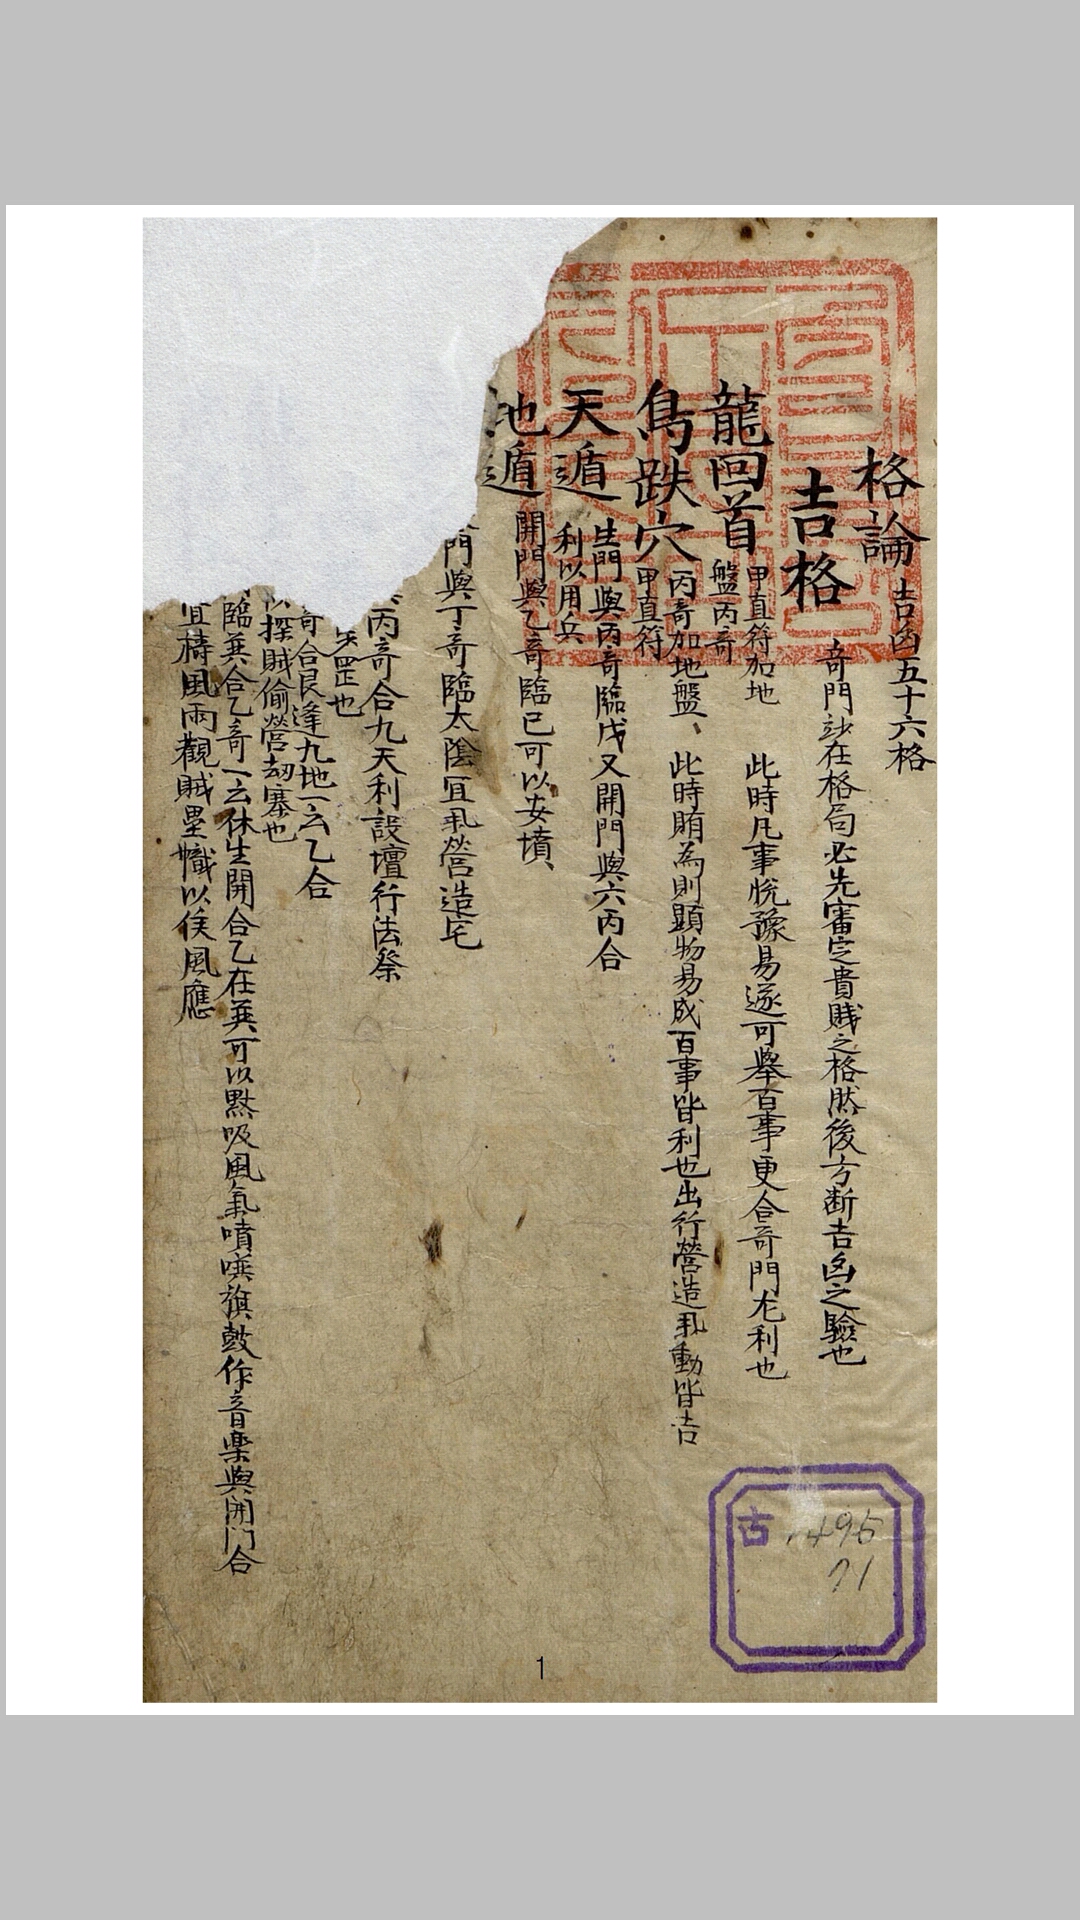 格論 吉凶五十六格
吉格 奇門玅在格局必先審定貴賤之格然後方断吉凶之驗也
龍回首 甲直符加地
盤丙奇 此時凡事悅豫易遂可舉百事更合奇門尤利也
鳥跌穴 丙奇加地盤、
甲直符 此時賄為則顕物易成百事皆利也出行營造乳動皆吉
天遁 生門與丙奇臨戊又開門與六丙合
利以用兵
地遁 開門與乙奇臨已可以安墳、
門與丁奇臨太陰宜乳營造宅
丙奇合九天利設壇行法祭
罡也
奇合艮逢九地一云乙合
以探賊偷營刼寨也
臨㢲合乙奇一云休生開合乙在㢲可以黙吸風氣噴噀旗鼓作音樂與開門合
宜禱風雨觀賊壘幟以侯風應
古 1495
71
1